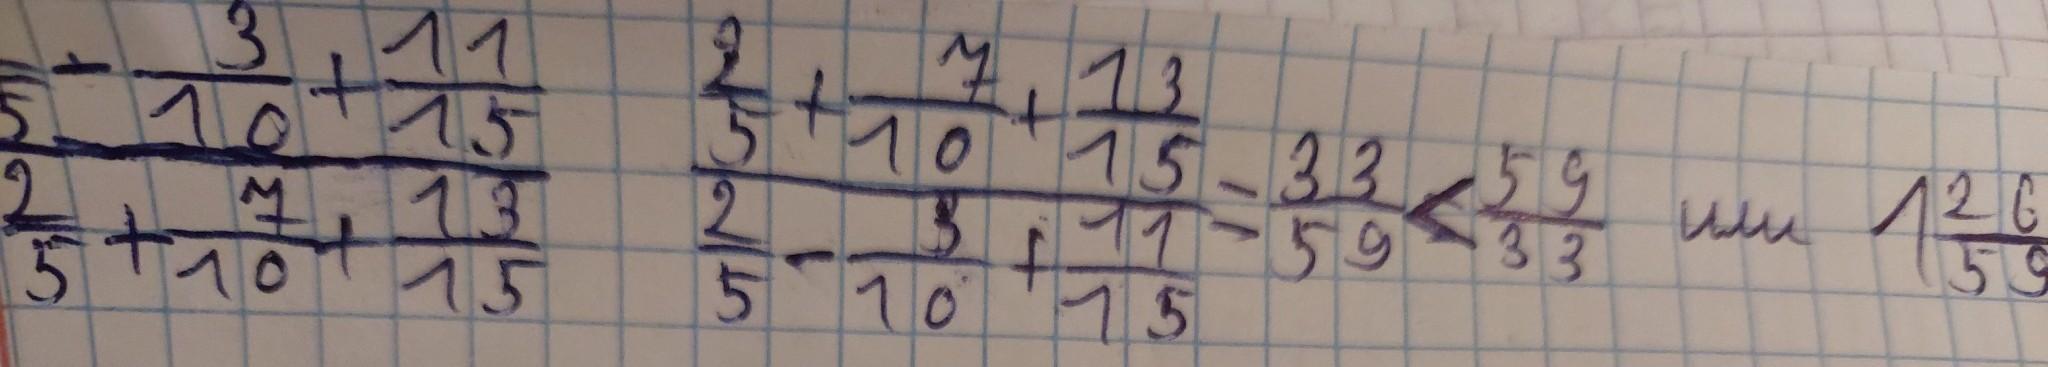 5 - 3/10 + 11/15 2/5 + 7/10 + 13/15
2/5 + 7/10 + 13/15 2/5 - 3/10 + 11/15 = 33/59 < 59/33 или 1 26/59